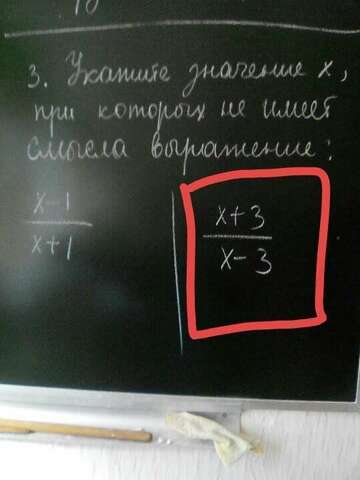 3. Укажите значение x,
при которых не имеет
смысла выражение:
x-1
x+1
x+3
x-3